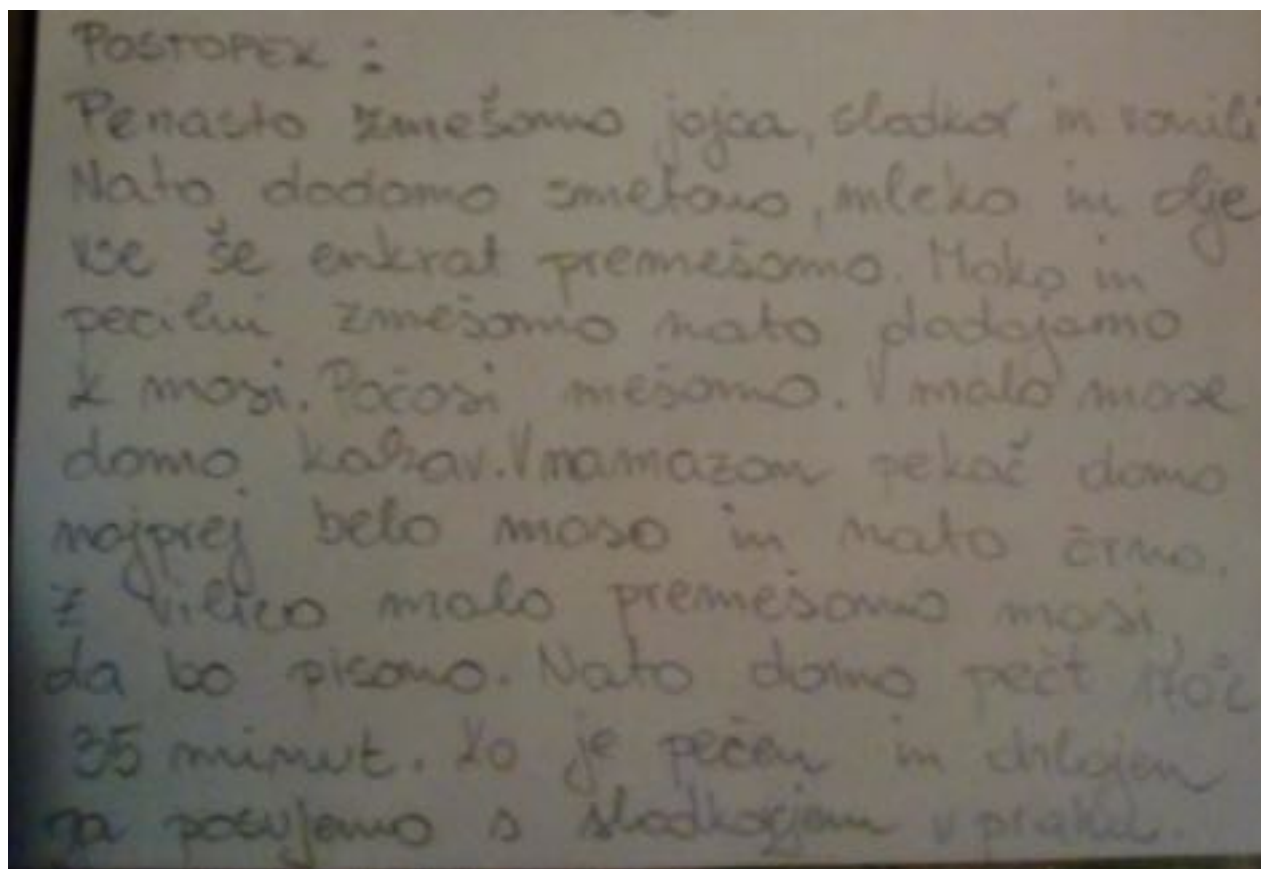 POSTOPEK :
Penasto zmešamo jajca, sladkor in vanili
Nato dodamo smetano, mleko in olje
vse še enkrat premešamo. Moko in
pecilni zmešamo nato dodajamo
k masi. Počasi mešamo. V malo mase
damo kakav. V namazan pekač damo
najprej belo maso in nato črno.
Z vilico malo premešamo masi,
da bo pisano. Nato damo pečt 170°C
35 minut. Ko je pečen in ohlajen
ga posujemo s sladkorjem v prahu.